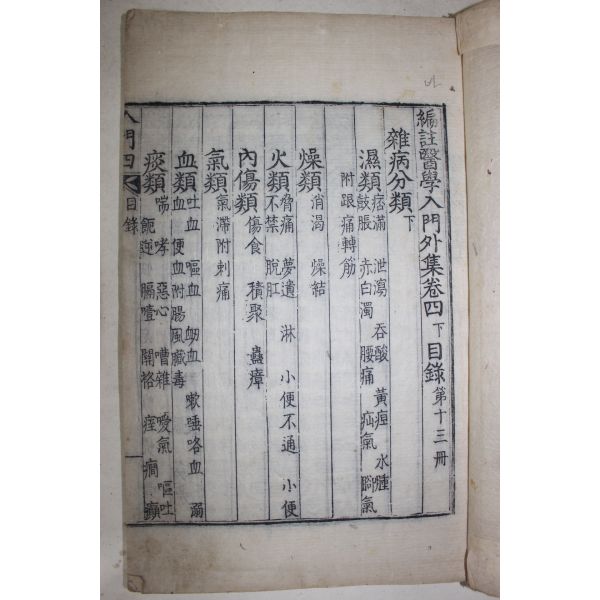 編註醫學入門外集卷四下目錄 第十三冊
雜病分類下
濕類 痞滿 泄瀉 吞酸 黃疸 水腫
鼓脹 赤白濁 腰痛 疝氣 脚氣
附跟痛轉筋
燥類 消渴 燥結
火類 脅痛 夢遺 淋 小便不通 小便
不禁 脫肛
內傷類 傷食 積聚 蠱瘴
氣類 氣滯附刺痛
血類 吐血 嘔血 衂血 嗽唾咯血 溺
血 便血附腸風臟毒
痰類 喘 哮 惡心 嘈雜 噯氣 嘔吐
呃逆 膈噎 關格 痓 癎 癲
入門四 目錄